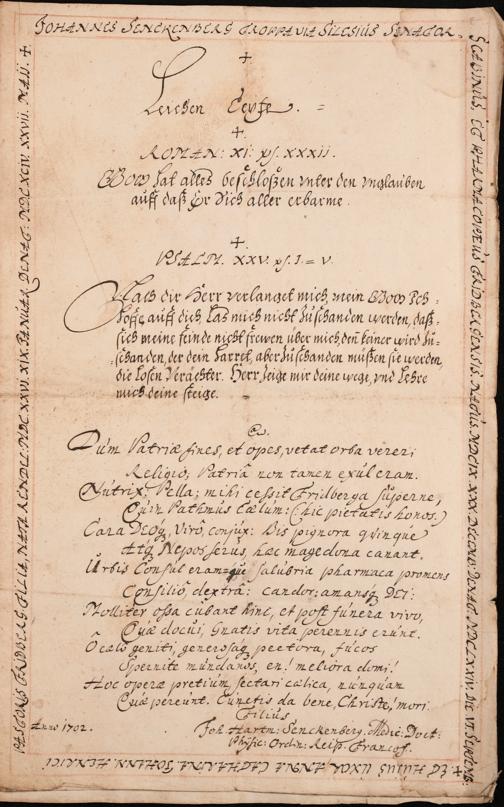 JOHANNES SENCKENBERG TROPPAVIA SILESIUS SENATOR.
SCABINUS ET PHARMACOPŒUS FRIDBERGENSIS. NATUS MDCIX. XXX. DECEMB: DENAT. MDCLXXIV. die VI Septemb:
ET HUIUS UXOR ANNA CATHARINA JOHANN HENRICI
PASTORIS FRIDBERG: FILIA, NATA
MDCXXVI. XIX. JANUAR. DENAT. MDCXCIV. XXVII. MAII.
Leichen Texte.
ROMAN: XI: vs. XXXII.
GOTT hat alles beschloßen unter den unglauben
auff daß Er sich aller erbarme.
PSALM. XXV. vs. 1 = V.
Nach dir Herr verlanget mich, mein GOTT Ich
hoffe auff dich Las mich nicht zuschanden werden, daß
sich meine feinde nicht frewen über mich, den keiner wird zu-
schanden, der dein harret, aber zuschanden müßen sie werden
die losen verächter. Herr zeige mir deine wege, und lehre
mich deine steige.
Dum Patriæ fines, et opes, vetat orba vereri
Religio; Patriâ non tamen exul eram.
Nutrix Pella; mihi cessit Fridberga superne,
Cum Pathmus Cælum: (hic pietatis honos.)
Cara DEOq, viro, conjux: Bis pignora quinque
Atq Nepos serus, hæc mage dona canant.
Urbis Consul eram, salubria pharmaca promens
Consilio, dextrâ: candor; amansq DEI:
Molliter ossa cubant hinc, et post funera vivo,
Quæ docui, Gnatis vita perennis erunt.
O cælo geniti, generosaq pectora, fucos
Spernite mundanos, en! meliora domi!
Hoc operæ pretium, sectari cælica, nunquam
Quæ pereunt. Cunctis da bene, Christe, mori.
Filius
Joh. Hartm: Senckenberg, Medic: Doct:
Physic: Ordin: Reip. Francof.
Anno 1702.